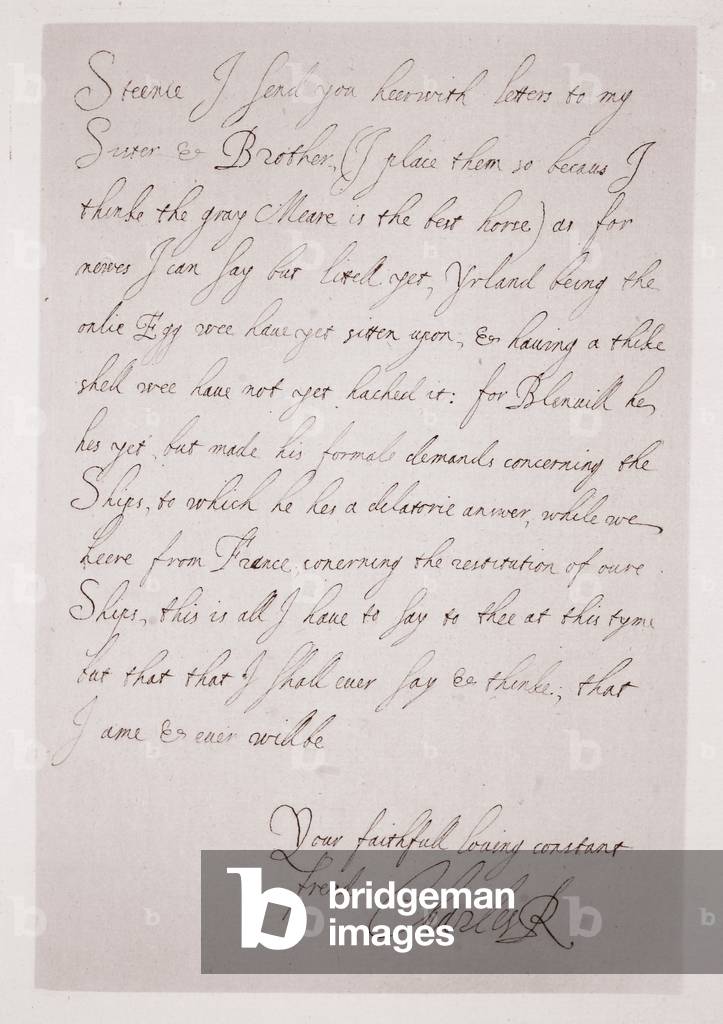 Steenie I send you heerwith letters to my
Sister & Brother, (I place them so becaus I
thinke the gray Meare is the best horse) as for
newes I can say but litell yet, Yrland being the
onlie Egg wee have yet sitten upon, & having a thike
shell wee have not yet hached it: for Blenvill he
hes yet but made his formale demands concerning the
Ships, to which he hes a delatorie answer, while we
heere from France conerning the restitution of oure
Ships, this is all I have to say to thee at this tyme
but that that I shall ever say & thinke, that
I ame & ever will be
Your faithfull loving constant
frend Charles R
bridgeman
images